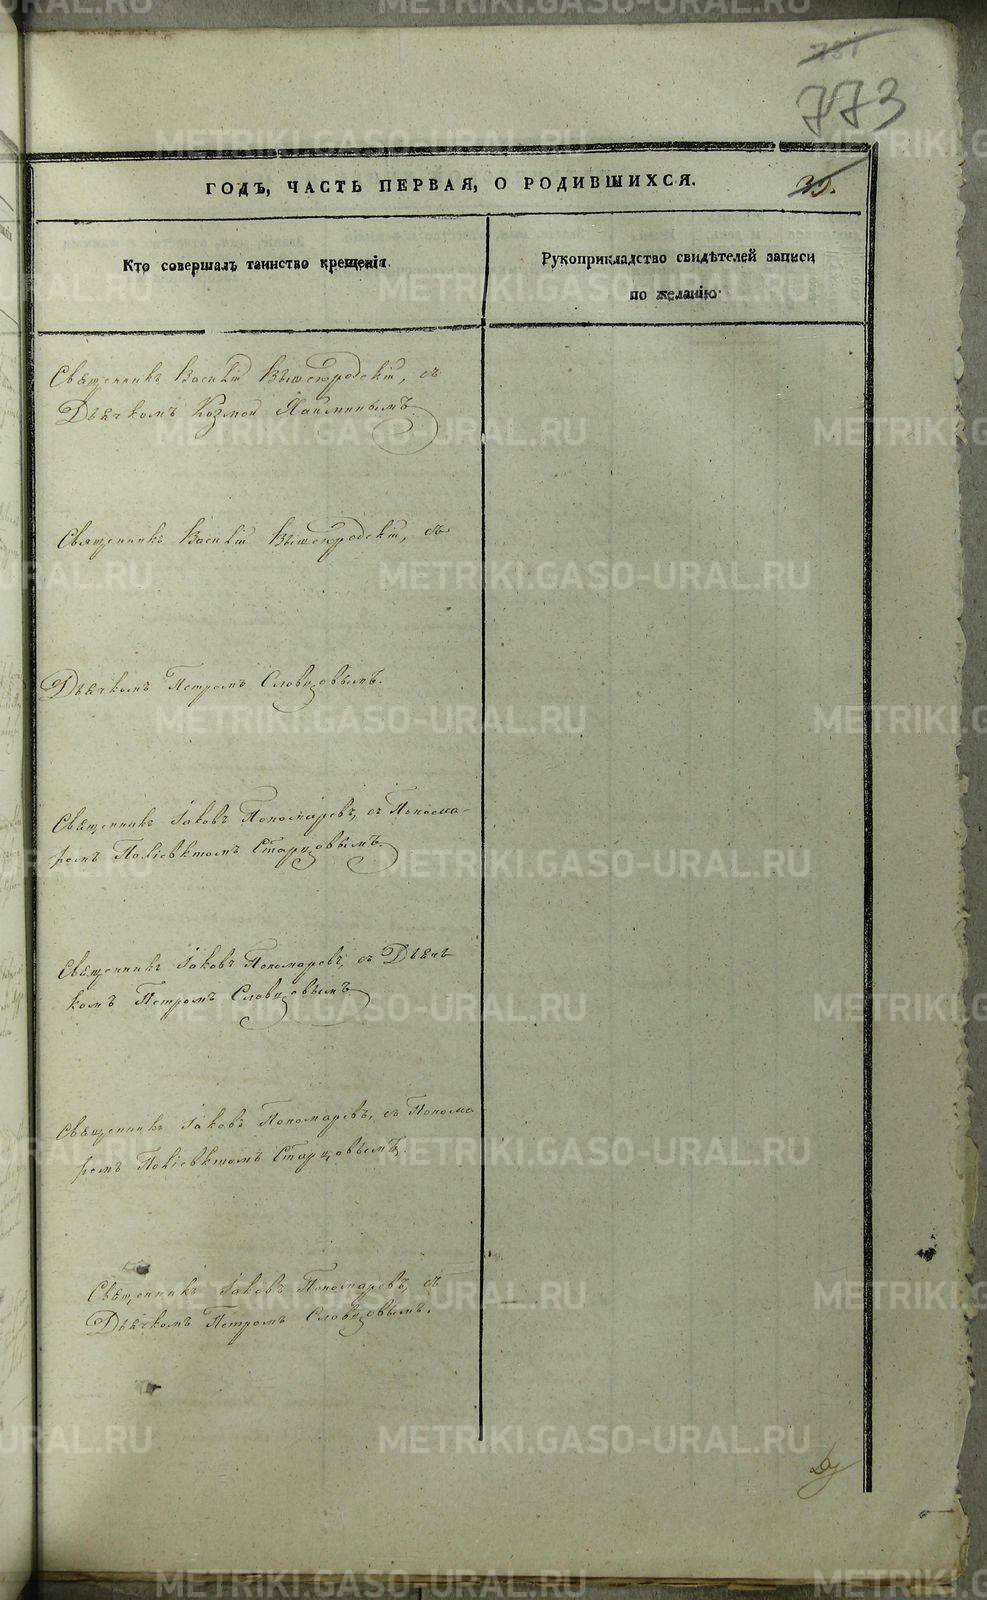 781
773
ГОДЪ, ЧАСТЬ ПЕРВАЯ, О РОДИВШИХСЯ.
Кто совершалъ таинство крещенія.
Рукоприкладство свидѣтелей записи
по желанію
Священникъ Василій Вышегородскій, съ
Дьячкомъ Козмой
Священникъ Василій Вышегородскій, съ
Дьячкомъ Петромъ Словцовымъ.
Священникъ Іаковъ Пономаревъ, съ Понома-
ремъ Поліевктомъ Старцовымъ.
Священникъ Іаковъ Пономаревъ, съ Дьяч-
комъ Петромъ Словцовымъ
Священникъ Іаковъ Пономаревъ, съ Понома
ремъ Поліевктомъ Старцовымъ.
Священникъ Іаковъ Пономаревъ, съ
Дьячкомъ Петромъ Словцовымъ.
METRIKI.GASO-URAL.RU